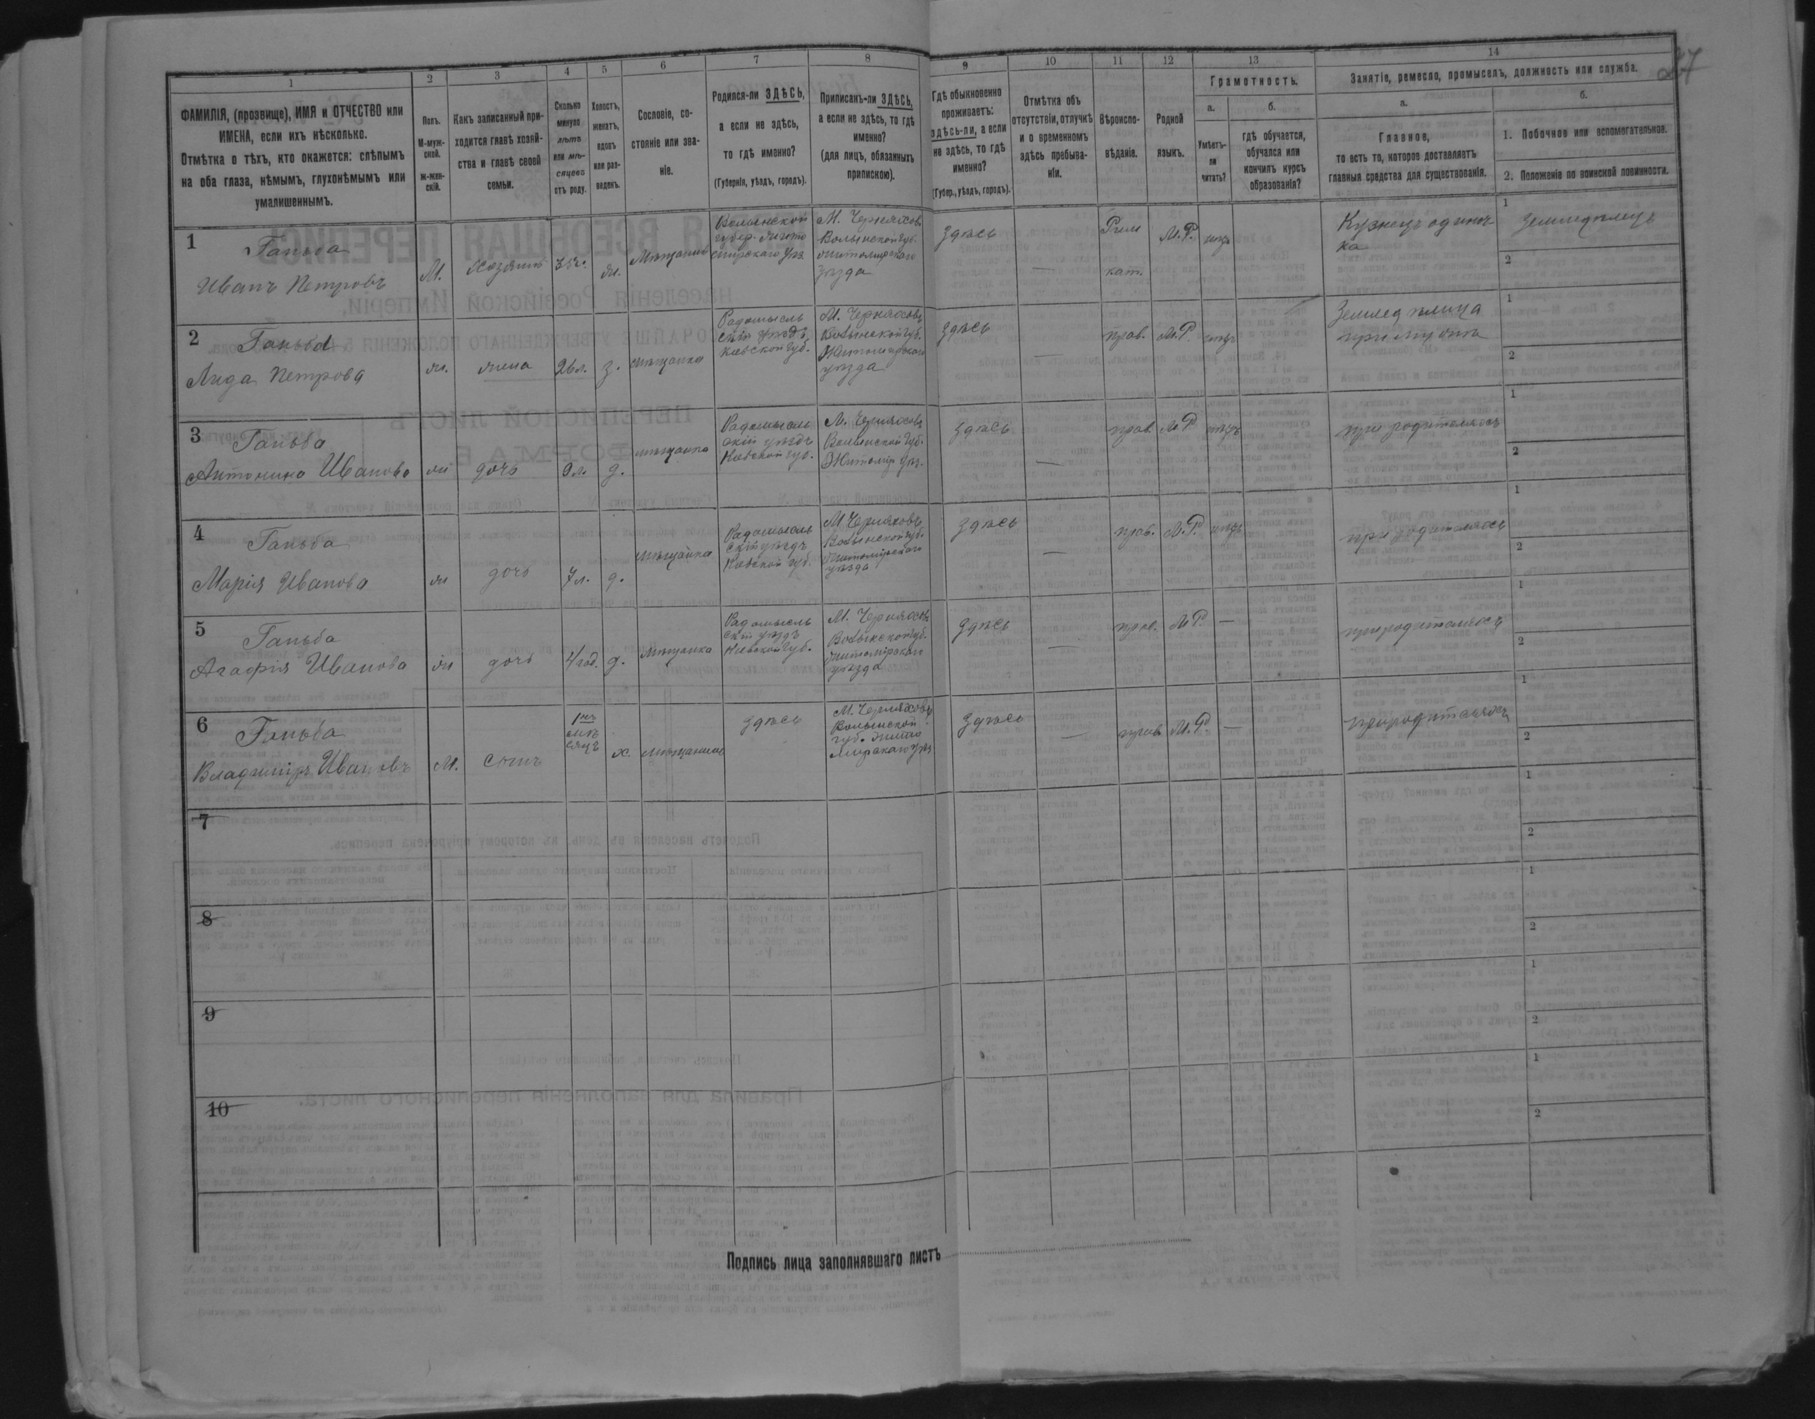 27
1
2
3
4
5
6
7
8
9
10
11
12
13
14
ФАМИЛІЯ, (прозвище), ИМЯ и ОТЧЕСТВО или
ИМЕНА, если ихъ нѣсколько.
Отмѣтка о тѣхъ, кто окажется: слѣпымъ
на оба глаза, нѣмымъ, глухонѣмымъ или
умалишеннымъ.
Полъ.
М-муж-
ской.
ж-жен-
скій.
Какъ записанный при-
ходится главѣ хозяй-
ства и главѣ своей
семьи.
Сколько
минуло
лѣтъ
или мѣ-
сяцевъ
отъ роду.
Холостъ,
женатъ,
вдовъ
или раз-
веденъ.
Сословіе, со-
стояніе или зва-
ніе.
Родился-ли ЗДѢСЬ,
а если не здѣсь,
то гдѣ именно?
(Губернія, уѣздъ, городъ).
Приписанъ-ли ЗДѢСЬ,
а если не здѣсь, то гдѣ
именно?
(для лицъ, обязанныхъ
припискою).
Гдѣ обыкновенно
проживаетъ:
здѣсь-ли, а если
не здѣсь, то гдѣ
именно?
(Губер., уѣздъ, городъ).
Отмѣтка объ
отсутствіи, отлучкѣ
и о временномъ
здѣсь пребыва-
ніи.
Вѣроиспо-
вѣданіе.
Родной
языкъ.
Грамотность.
а.
б.
Умѣетъ-
ли
читать?
гдѣ обучается,
обучался или
кончилъ курсъ
образованія?
Занятія, ремесло, промыселъ, должность или служба.
а.
б.
Главное,
то есть то, которое доставляетъ
главныя средства для существованія.
1. Побочное или вспомогательное.
2. Положеніе по воинской повинности.
1
Ганьба
Иванъ Петровъ
М.
Хозяинъ
ж.
Мѣщанинъ
Волынской
губер. Жито
мирскаго уѣз
М. Черняховъ
Волынской губ.
Житомирскаго
уѣзда
здѣсь
—
Рим
кат.
М.Р.
нѣтъ
Кузнецъ одиноч
ка
1 земледѣлецъ
2
2
Ганьба
Лида Петрова
ж.
жена
26 л.
з.
мѣщанка
Радомысль
скій уѣздъ
Кіевской губ.
М. Черняховъ
Волынской губ.
Житомирскаго
уѣзда
здѣсь
—
прав.
М.Р
нѣтъ
Земледѣлица
при мужѣ
1
2
3
Ганьба
Антонина Иванова
ж
дочь
9 л.
д.
мѣщанка
Радомысль
скій уѣздъ
Кіевской губ.
М. Черняховъ
Волынской губ.
Житомір уѣз.
здѣсь
—
прав.
М.Р
нѣтъ
при родителяхъ
1
2
4
Ганьба
Марія Иванова
ж
дочь
7 л.
д.
мѣщанка
Радомысль
скій уѣздъ
Кіевской губ.
М. Черняховъ
Волынской губ.
Житомірскаго
уѣзда
здѣсь
—
прав.
М.Р.
нѣтъ
при родителяхъ
1
2
5
Ганьба
Агафія Иванова
ж
дочь
4 год.
д.
мѣщанка
Радомысль
скій уѣздъ
Кіевской губ.
М. Черняховъ
Волынской губ.
Житомірскаго
уѣзда
здѣсь
—
прав.
М.Р
—
при родителяхъ
1
2
6
Ганьба
Владимиръ Ивановъ
М.
сынъ
1
мѣ
сяцъ
х.
мѣщанинъ
здѣсь
М. Черняховъ
Волынской
губ. Жито
мирскаго уѣз
здѣсь
—
прав
М.Р.
—
при родителяхъ
1
2
7
1
2
8
1
2
9
1
2
10
1
2
Подпись лица заполнявшаго листъ